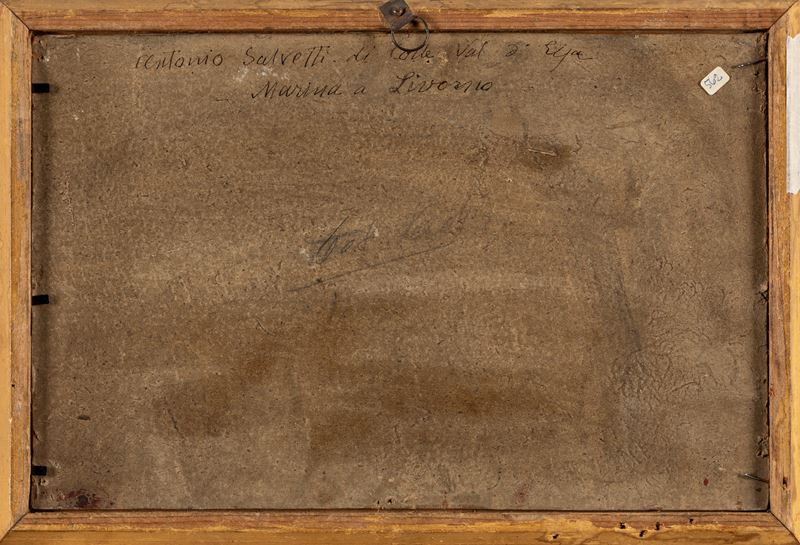 Antonio Salvetti di Colle Val d'Elsa
Marina a Livorno